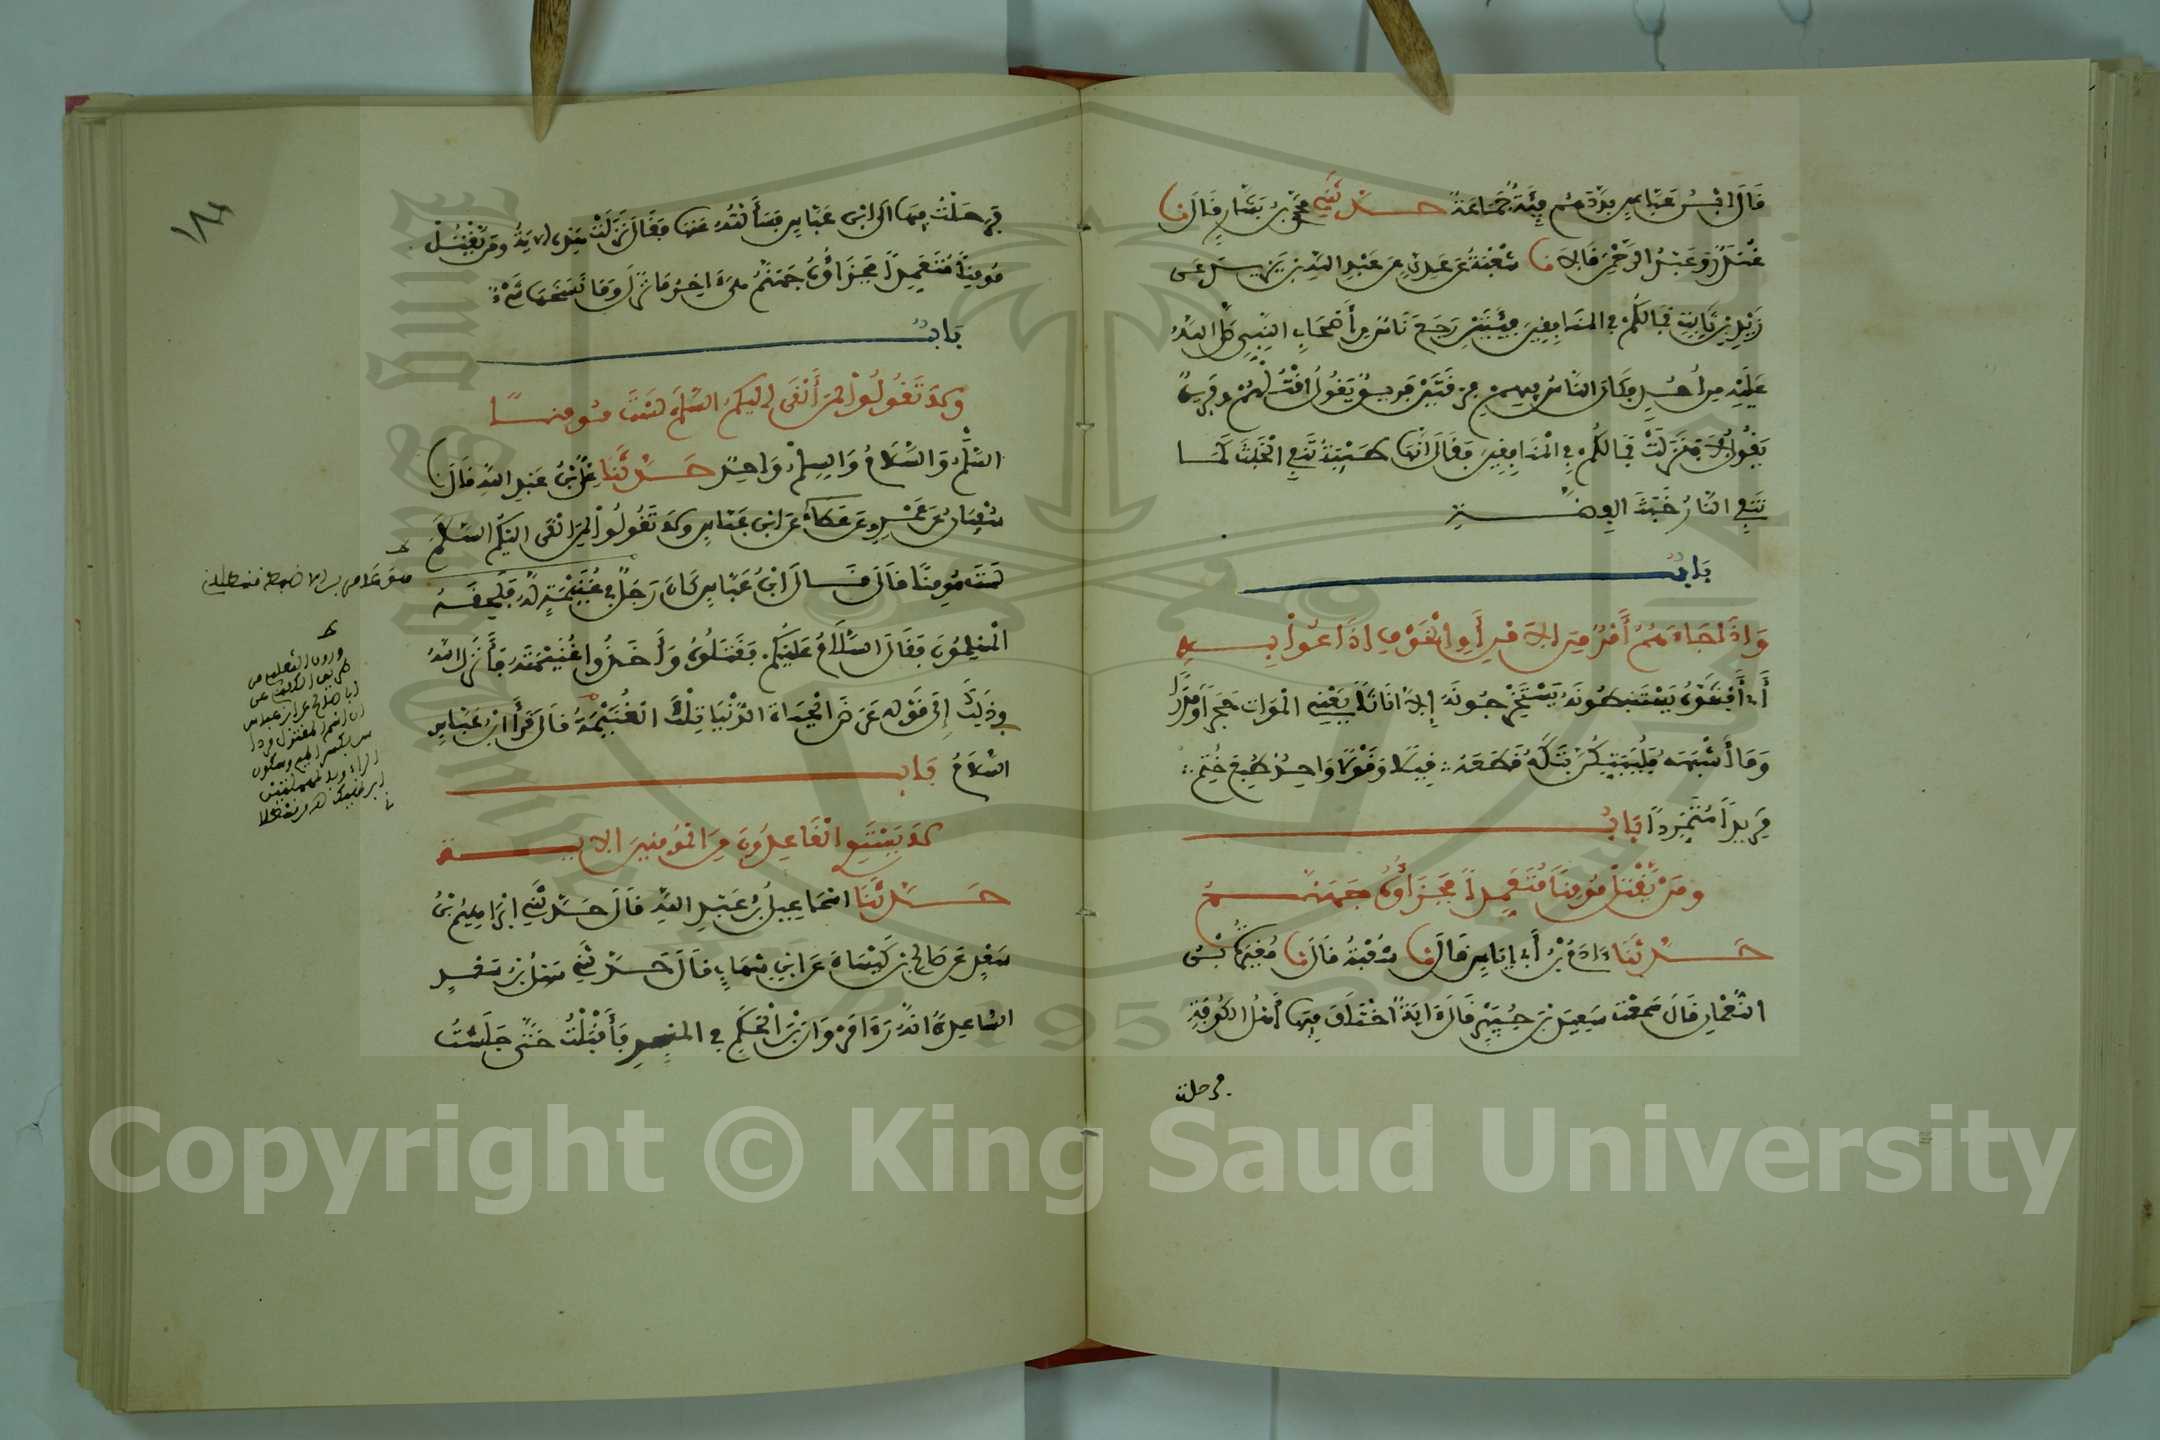 قَالَ ابْنُ عَبَّاسٍ بَدَّدَهُمْ فِئَةٌ جَمَاعَةٌ حَدَّثَنِي مُحَمَّدُ بْنُ بَشَّارٍ قَالَ نَا
غُنْدَرٌ وَعَبْدُ الرَّحْمَنِ قَالَا نَا شُعْبَةُ عَنْ عَدِيٍّ عَنْ عَبْدِ اللَّهِ بْنِ يَزِيدَ عَنْ
زَيْدِ بْنِ ثَابِتٍ فَمَا لَكُمْ فِي الْمُنَافِقِينَ فِئَتَيْنِ رَجَعَ نَاسٌ مِنْ أَصْحَابِ النَّبِيِّ صَلَّى اللَّهُ
عَلَيْهِ مِنْ أُحُدٍ وَكَانَ النَّاسُ فِيهِمْ فِرْقَتَيْنِ فَرِيقٌ يَقُولُ اقْتُلْهُمْ وَفَرِيقٌ
يَقُولُ لَا فَنَزَلَتْ فَمَا لَكُمْ فِي الْمُنَافِقِينَ فَقَالَ إِنَّهَا طَيْبَةُ تَنْفِي الْخَبَثَ كَمَا
تَنْفِي النَّارُ خَبَثَ الْفِضَّةِ
بَابٌ
وَإِذَا جَاءَهُمْ أَمْرٌ مِنَ الْأَمْنِ أَوِ الْخَوْفِ أَذَاعُوا بِهِ
أَيْ أَفْشَوْهُ يَسْتَنْبِطُونَهُ يَسْتَخْرِجُونَهُ إِلَّا إِنَاثًا يَعْنِي الْمَوَاتَ حَجَرًا أَوْ مَدَرًا
وَمَا أَشْبَهَهُ فَلَيُبَتِّكُنَّ بَتَّكَهُ قَطَعَهُ قِيلًا وَقَوْلًا وَاحِدٌ طُبِعَ خُتِمَ
مَرِيدًا مُتَمَرِّدًا بَابٌ
وَمَنْ يَقْتُلْ مُؤْمِنًا مُتَعَمِّدًا فَجَزَاؤُهُ جَهَنَّمُ
حَدَّثَنَا ءَادَمُ بْنُ أَبِي إِيَاسٍ قَالَ نَا شُعْبَةُ قَالَ نَا مُغِيرَةُ بْنُ
النُّعْمَانِ قَالَ سَمِعْتُ سَعِيدَ بْنَ جُبَيْرٍ قَالَ ءَايَةٌ اخْتَلَفَ فِيهَا أَهْلُ الْكُوفَةِ
فرحلت
١٨٤
فَرَحَلْتُ فِيهَا إِلَى ابْنِ عَبَّاسٍ فَسَأَلْتُهُ عَنْهَا فَقَالَ نَزَلَتْ هَذِهِ الْآيَةُ وَمَنْ يَقْتُلْ
مُؤْمِنًا مُتَعَمِّدًا فَجَزَاؤُهُ جَهَنَّمُ هِيَ ءَاخِرُ مَا نَزَلَ وَمَا نَسَخَهَا شَيْءٌ
بَابٌ
وَلَا تَقُولُوا لِمَنْ أَلْقَى إِلَيْكُمُ السَّلَمَ لَسْتَ مُؤْمِنًا
السَّلَمُ وَالسَّلَامُ وَالسِّلْمُ وَاحِدٌ حَدَّثَنَا عَلِيُّ بْنُ عَبْدِ اللَّهِ قَالَ نَا
سُفْيَانُ عَنْ عَمْرٍو عَنْ عَطَاءٍ عَنِ ابْنِ عَبَّاسٍ وَلَا تَقُولُوا لِمَنْ أَلْقَى إِلَيْكُمُ السَّلَمَ
لَسْتَ مُؤْمِنًا قَالَ قَالَ ابْنُ عَبَّاسٍ كَانَ رَجُلٌ فِي غُنَيْمَةٍ لَهُ فَلَحِقَهُ
الْمُسْلِمُونَ فَقَالَ السَّلَامُ عَلَيْكُمْ فَقَتَلُوهُ وَأَخَذُوا غُنَيْمَتَهُ فَأَنْزَلَ اللَّهُ
فِي ذَلِكَ إِلَى قَوْلِهِ عَرَضَ الْحَيَاةِ الدُّنْيَا تِلْكَ الْغُنَيْمَةُ قَالَ قَرَأَ ابْنُ عَبَّاسٍ
السَّلَامَ بَابٌ
لَا يَسْتَوِي الْقَاعِدُونَ مِنَ الْمُؤْمِنِينَ الْآيَةَ
حَدَّثَنَا إِسْمَاعِيلُ بْنُ عَبْدِ اللَّهِ قَالَ حَدَّثَنِي إِبْرَاهِيمُ بْنُ
سَعْدٍ عَنْ صَالِحِ بْنِ كَيْسَانَ عَنِ ابْنِ شِهَابٍ قَالَ حَدَّثَنِي سَهْلُ بْنُ سَعْدٍ
السَّاعِدِيُّ أَنَّهُ رَأَى مَرْوَانَ بْنَ الْحَكَمِ فِي الْمَسْجِدِ فَأَقْبَلْتُ حَتَّى جَلَسْتُ
وروى الثعلبي من
طريق الكلبي عن
أبي صالح عن ابن عباس
ان اسم المقتول مردا
س بكسر الميم وسكون
الراء وبالمهملتين
ابن نهيك
Copyright © King Saud University
1957